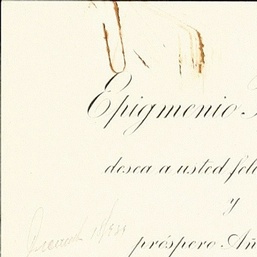 Epigmenio
desea a usted feli
y
próspero Añ